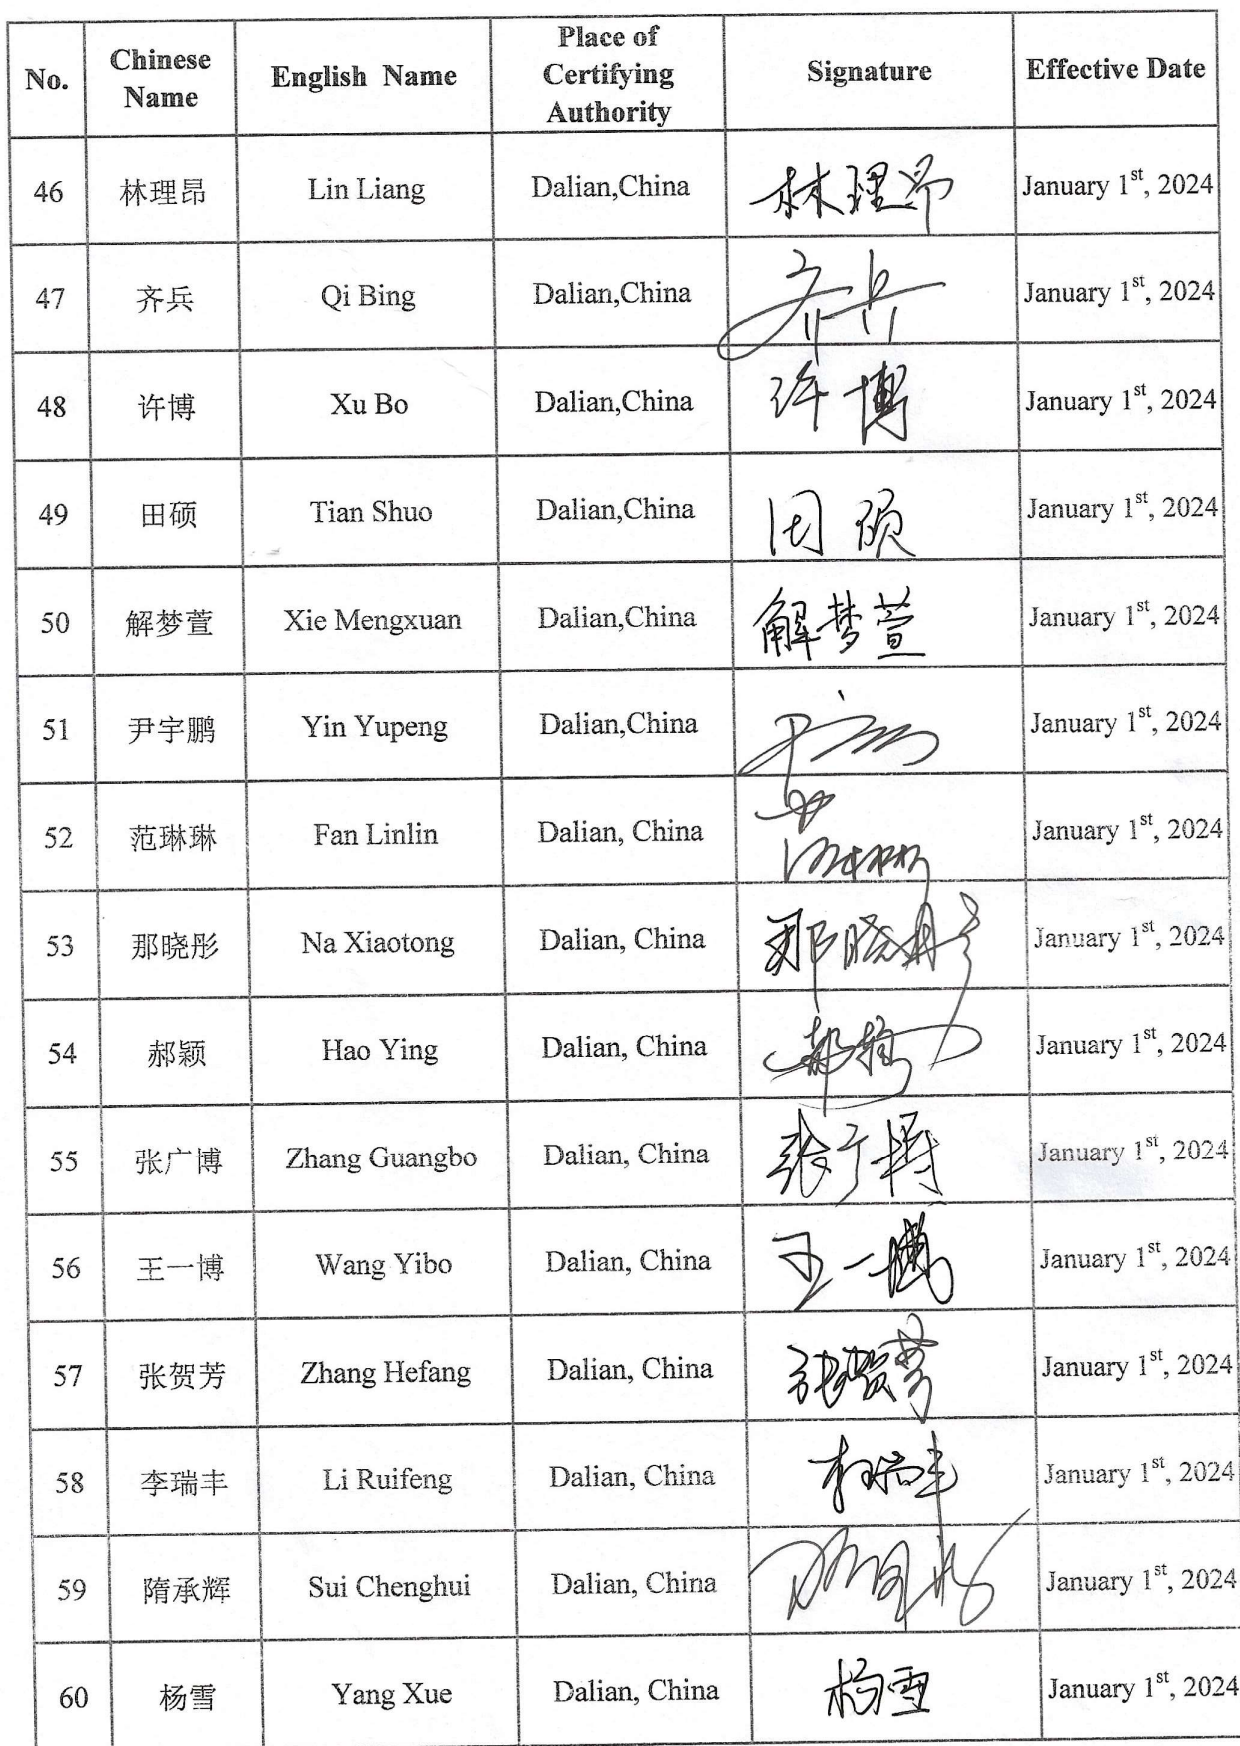 No. Chinese Name English Name Place of Certifying Authority Signature Effective Date
46 林理昂 Lin Liang Dalian,China 林理昂 January 1st, 2024
47 齐兵 Qi Bing Dalian,China 齐兵 January 1st, 2024
48 许博 Xu Bo Dalian,China 许博 January 1st, 2024
49 田硕 Tian Shuo Dalian,China 田硕 January 1st, 2024
50 解梦萱 Xie Mengxuan Dalian,China 解梦萱 January 1st, 2024
51 尹宇鹏 Yin Yupeng Dalian,China January 1st, 2024
52 范琳琳 Fan Linlin Dalian, China January 1st, 2024
53 那晓彤 Na Xiaotong Dalian, China 那晓彤 January 1st, 2024
54 郝颖 Hao Ying Dalian, China 郝颖 January 1st, 2024
55 张广博 Zhang Guangbo Dalian, China 张广博 January 1st, 2024
56 王一博 Wang Yibo Dalian, China 王一博 January 1st, 2024
57 张贺芳 Zhang Hefang Dalian, China 张贺芳 January 1st, 2024
58 李瑞丰 Li Ruifeng Dalian, China 李瑞丰 January 1st, 2024
59 隋承辉 Sui Chenghui Dalian, China January 1st, 2024
60 杨雪 Yang Xue Dalian, China 杨雪 January 1st, 2024